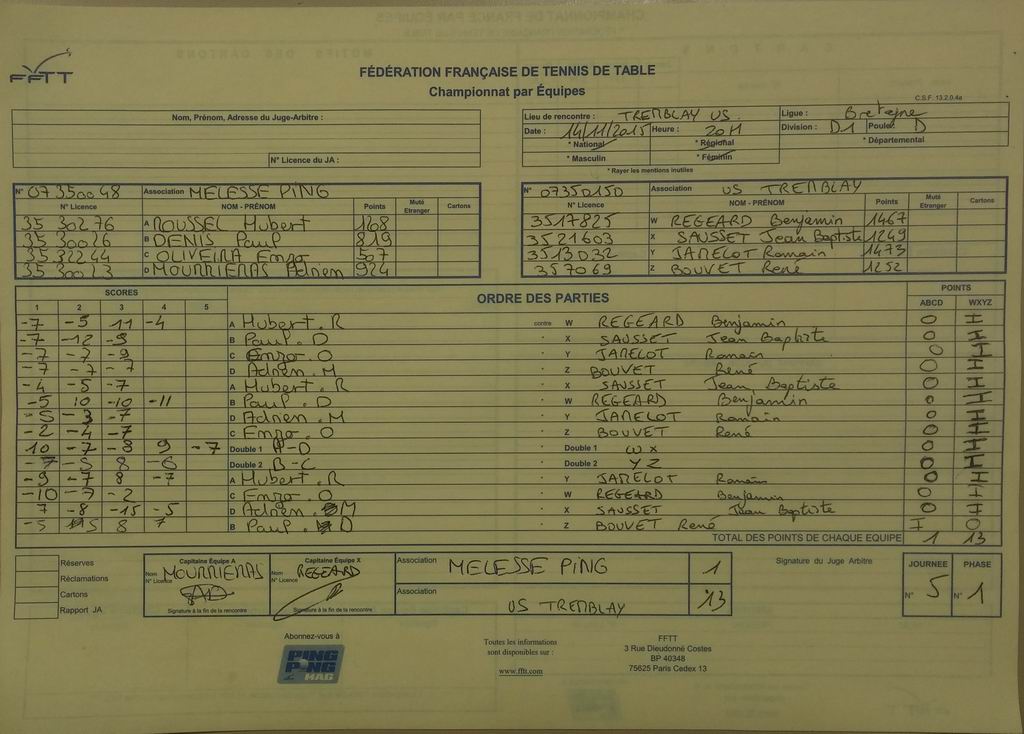 FFTT
FÉDÉRATION FRANÇAISE DE TENNIS DE TABLE
Championnat par Équipes
C.S.F. 13.2.0.4a
Nom, Prénom, Adresse du Juge-Arbitre :
N° Licence du JA :
Lieu de rencontre : TREMBLAY US Ligue : Bretagne
Date : 14/11/2015 Heure : 20H Division : D1 Poule : D
* National * Régional * Départemental
* Masculin * Féminin
* Rayer les mentions inutiles
N° 07350048 Association MELESSE PING
N° Licence NOM - PRÉNOM Points Muté Etranger Cartons
35 30276 A ROUSSEL Hubert 1268
35 30026 B DENIS Paul 819
35 32244 C OLIVEIRA Enzo 507
35 30023 D MOURRIERAS Adrien 924
N° 07350150 Association US TREMBLAY
N° Licence NOM - PRÉNOM Points Muté Etranger Cartons
3517825 W REGEARD Benjamin 1467
3521603 X SAUSSET Jean Baptiste 1249
3513032 Y JAMELOT Romain 1473
357069 Z BOUVET René 1252
SCORES ORDRE DES PARTIES POINTS
1 2 3 4 5 ABCD WXYZ
-7 -5 11 -4 A Hubert.R contre W REGEARD Benjamin 0 1
-7 -12 -9 B Paul.D " X SAUSSET Jean Baptiste 0 1
-7 -7 -9 C Enzo.O " Y JAMELOT Romain 0 1
-7 -7 -7 D Adrien.M " Z BOUVET René 0 1
-4 -5 -7 A Hubert.R " X SAUSSET Jean Baptiste 0 1
-5 10 -10 -11 B Paul.D " W REGEARD Benjamin 0 1
-5 -3 -7 D Adrien.M " Y JAMELOT Romain 0 1
-2 -4 -7 C Enzo.O " Z BOUVET René 0 1
10 -7 -8 9 -7 Double 1 A-D " Double 1 W X 0 1
-7 -5 8 -6 Double 2 B-C " Double 2 Y Z 0 1
-9 -7 8 -7 A Hubert.R " Y JAMELOT Romain 0 1
-10 -7 -2 C Enzo.O " W REGEARD Benjamin 0 1
7 -8 -15 -5 D Adrien.M " X SAUSSET Jean Baptiste 0 1
-5 5 8 7 B Paul.D " Z BOUVET René 1 0
TOTAL DES POINTS DE CHAQUE EQUIPE 1 13
Réserves
Réclamations
Cartons
Rapport JA
Capitaine Équipe A
Nom MOURRIERAS
N° Licence
Signature à la fin de la rencontre
Capitaine Équipe X
Nom REGEARD
N° Licence
Signature à la fin de la rencontre
Association MELESSE PING 1
Association US TREMBLAY 13
Signature du Juge Arbitre
JOURNEE PHASE
N° 5 N° 1
Abonnez-vous à
PING PONG MAG
Toutes les informations
sont disponibles sur :
www.fftt.com
FFTT
3 Rue Dieudonné Costes
BP 40348
75625 Paris Cedex 13